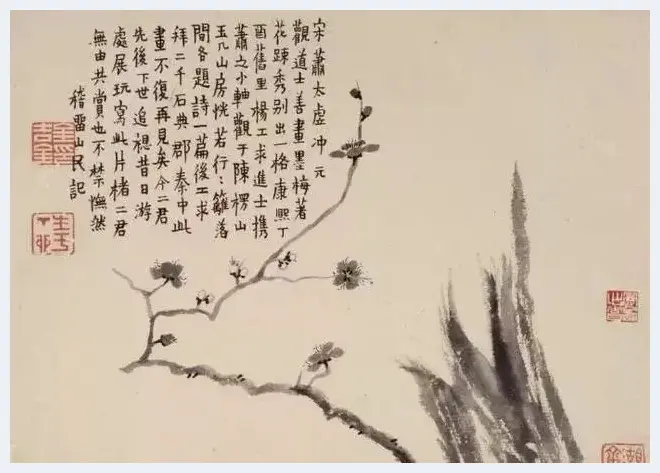 宋蕭太虛冲元
觀道士善畫墨梅著
花踈秀别出一格康熙丁
酉舊里楊工求進士携
蕭之小軸觀于陳楞山
玉几山房恍若行〻籬落
間各題詩一萹後工求
拜二千石典郡秦中此
畫不復再見矣今二君
先後下世追想昔日游
處展玩寫此片楮二君
無由共賞也不禁憮然
稽畱山民記
生于丁卯